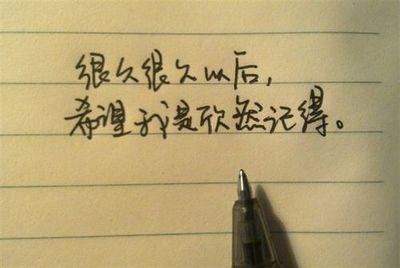 很久很久以后，
希望我是欣然记得。